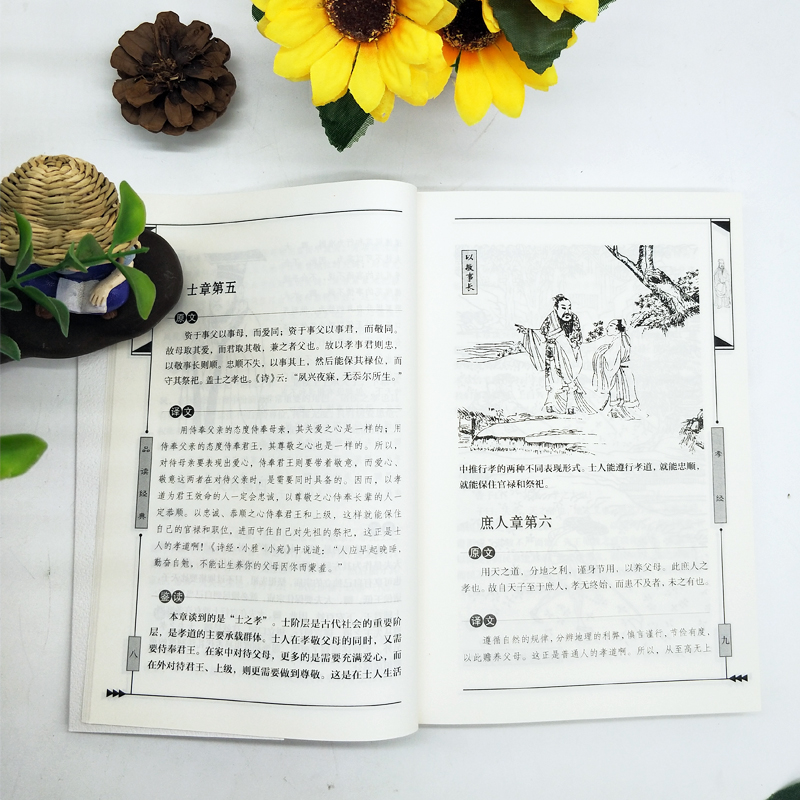 士章第五
原文
资于事父以事母，而爱同；资于事父以事君，而敬同。
故母取其爱，而君取其敬，兼之者父也。故以孝事君则忠，
以敬事长则顺。忠顺不失，以事其上，然后能保其禄位，而
守其祭祀。盖士之孝也。《诗》云：“夙兴夜寐，无忝尔所生。”
译文
用侍奉父亲的态度侍奉母亲，其关爱之心是一样的；用
侍奉父亲的态度侍奉君王，其尊敬之心也是一样的。所以，
对待母亲要表现出爱心，侍奉君王则要带着敬意，而爱心、
敬意这两者在对待父亲时，是需要同时具备的。因而，以孝
道为君王效命的人一定会忠诚，以尊敬之心侍奉长辈的人一
定恭顺。以忠诚、恭顺之心侍奉君王和上级，这样就能保住
自己的官禄和职位，进而守住自己对先祖的祭祀，这正是士
人的孝道啊！《诗经·小雅·小宛》中说道：“人应早起晚睡，
勤奋自勉，不能让生养你的父母因你而蒙羞。”
鉴读
本章谈到的是“士之孝”。士阶层是古代社会的重要阶
层，是孝道的主要承载群体。士人在孝敬父母的同时，又需
要侍奉君王。在家中对待父母，更多的是需要充满爱心，而
在外对待君王、上级，则更需要做到尊敬。这是在士人生活
品读经典
八
以敬事长
中推行孝的两种不同表现形式。士人能遵行孝道，就能忠顺，
就能保住官禄和祭祀。
庶人章第六
原文
用天之道，分地之利，谨身节用，以养父母。此庶人之
孝也。故自天子至于庶人，孝无终始，而患不及者，未之有也。
译文
遵循自然的规律，分辨地理的利弊，慎言谨行，节俭有度，
以此赡养父母。这正是普通人的孝道啊。所以，从至高无上
孝经
九